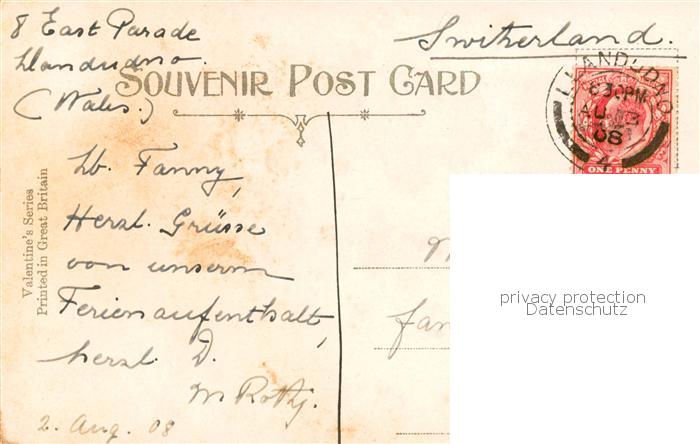 8 East Parade
Llandudno.
(Wales.)
Switherland.
SOUVENIR POST CARD
LLANDUDNO
8 30 PM
AU
08
ONE PENNY
Valentine's Series
Printed in Great Britain
Lb. Fanny,
Herzl. Grüsse
von unserm
Ferienaufenthalt,
herzl. D.
2. Aug. 08
privacy protection
Datenschutz